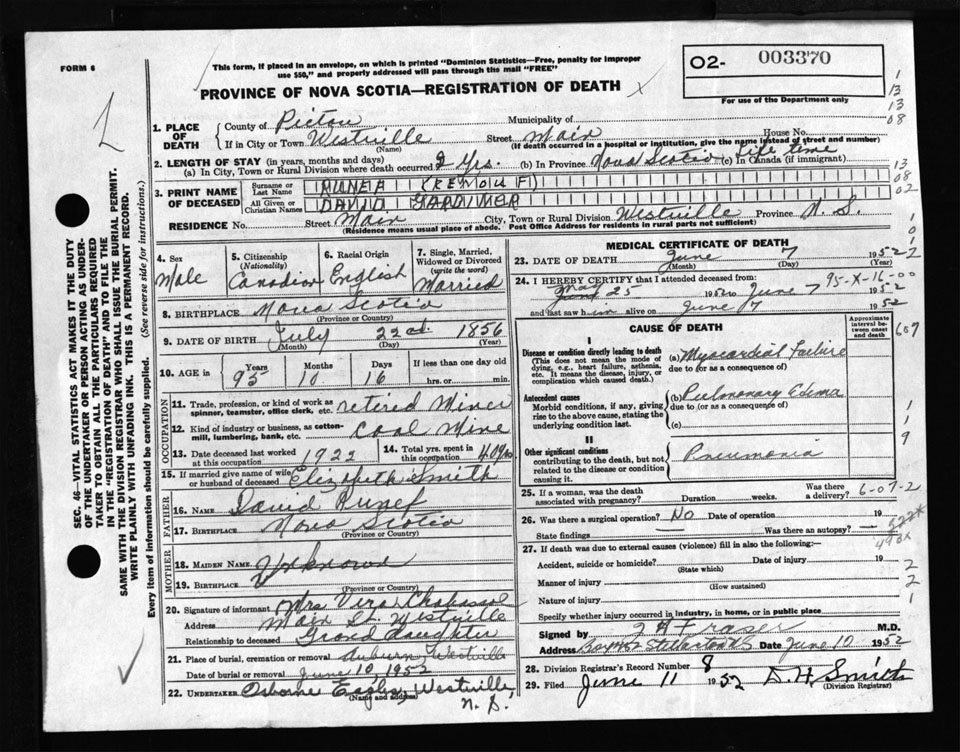 FORM 6
This form, if placed in an envelope, on which is printed "Dominion Statistics—Free, penalty for improper
use $50," and properly addressed will pass through the mail "FREE"
PROVINCE OF NOVA SCOTIA—REGISTRATION OF DEATH
O2- 003370
For use of the Department only
1. PLACE OF DEATH
County of Pictou Municipality of
If in City or Town Westville Street Main House No.
(Name) (If death occurred in a hospital or institution, give the name instead of street and number)
2. LENGTH OF STAY (in years, months and days)
(a) In City, Town or Rural Division where death occurred 2 Yrs. (b) In Province Nova Scotia (c) In Canada (if immigrant) life time
3. PRINT NAME OF DECEASED
Surname or Last Name
All Given or Christian Names DAVID GARDINER
RESIDENCE No. Street Main City, Town or Rural Division Westville Province N.S.
(Residence means usual place of abode. Post Office Address for residents in rural parts not sufficient)
4. Sex Male
5. Citizenship (Nationality) Canadian
6. Racial Origin English
7. Single, Married, Widowed or Divorced (write the word) Married
8. BIRTHPLACE Nova Scotia
(Province or Country)
9. DATE OF BIRTH July 22nd 1856
(Month) (Day) (Year)
10. AGE in Years 95 Months 10 Days 16 If less than one day old hrs. or min.
OCCUPATION
11. Trade, profession, or kind of work as spinner, teamster, office clerk, etc. retired Miner
12. Kind of industry or business, as cotton-mill, lumbering, bank, etc. Coal Mine
13. Date deceased last worked at this occupation 1922
14. Total yrs. spent in this occupation 40 yrs
15. If married give name of wife or husband of deceased Elizabeth Smith
FATHER
16. Name David
17. Birthplace Nova Scotia
(Province or Country)
MOTHER
18. Maiden Name Unknown
19. Birthplace
(Province or Country)
20. Signature of informant Mrs Vera
Address Main St. Westville
Relationship to deceased Grand daughter
21. Place of burial, cremation or removal Auburn Westville
Date of burial or removal June 10, 1952
22. Undertaker Osborne Eagles, Westville, N.S.
(Name and address)
MEDICAL CERTIFICATE OF DEATH
23. DATE OF DEATH June 7 1952
(Month) (Day) (Year)
24. I HEREBY CERTIFY that I attended deceased from: 95-X-16-00
May 25 1952 to June 7 1952
and last saw him alive on June 7 1952
CAUSE OF DEATH
Approximate interval between onset and death
I
Disease or condition directly leading to death
(This does not mean the mode of dying, e.g., heart failure, asthenia, etc. It means the disease, injury, or complication which caused death.)
(a) Myocardial Failure
due to (or as a consequence of)
Antecedent causes
Morbid conditions, if any, giving rise to the above cause, stating the underlying condition last.
(b) Pulmonary Edema
due to (or as a consequence of)
(c)
II
Other significant conditions
contributing to the death, but not related to the disease or condition causing it.
Pneumonia
25. If a woman, was the death associated with pregnancy? Duration weeks. Was there a delivery? 6-07-2
26. Was there a surgical operation? No Date of operation 19
State findings Was there an autopsy? —
27. If death was due to external causes (violence) fill in also the following:—
Accident, suicide or homicide? Date of injury 19
(State which)
Manner of injury
(How sustained)
Nature of injury
Specify whether injury occurred in industry, in home, or in public place
Signed by Fraser M.D.
Address Stellarton N.S. Date June 10 1952
28. Division Registrar's Record Number 8
29. Filed June 11 1952 D. H. Smith
(Division Registrar)
SEC. 46—VITAL STATISTICS ACT MAKES IT THE DUTY
OF THE UNDERTAKER OR PERSON ACTING AS UNDER-
TAKER TO OBTAIN ALL THE PARTICULARS REQUIRED
IN THE "REGISTRATION OF DEATH" AND TO FILE THE
SAME WITH THE DIVISION REGISTRAR WHO SHALL ISSUE THE BURIAL PERMIT.
WRITE PLAINLY WITH UNFADING INK. THIS IS A PERMANENT RECORD.
Every item of information should be carefully supplied. (See reverse side for instructions.)